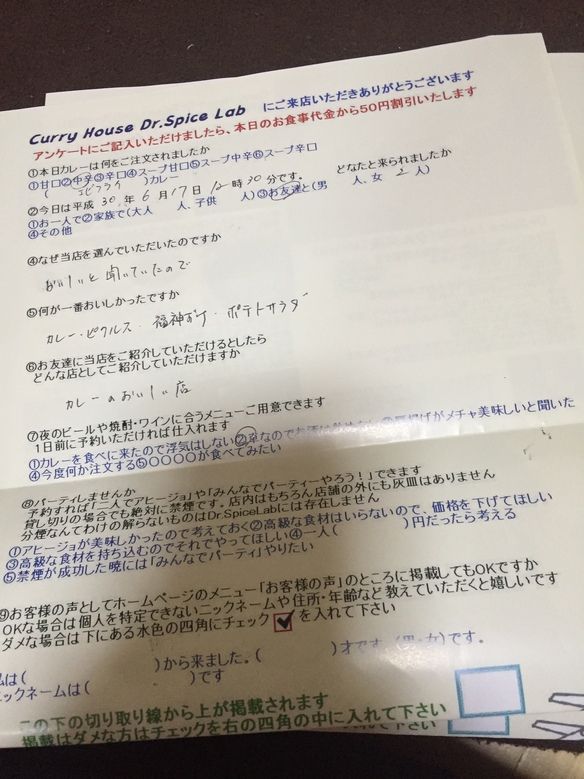 Curry House Dr.Spice Lab にご来店いただきありがとうございます
アンケートにご記入いただけましたら、本日のお食事代金から50円割引いたします
①本日カレーは何をご注文されましたか
①甘口②中辛③辛口④スープ甘口⑤スープ中辛⑥スープ辛口
( エビフライ )カレー
②今日は平成 30 年 6 月 17 日 12 時 30 分です。 どなたと来られましたか
①お一人で②家族で(大人 人、子供 人)③お友達と(男 人、女 2 人)
④その他
④なぜ当店を選んでいただいたのですか
おいしいと聞いていたので
⑤何が一番おいしかったですか
カレー・ピクルス・福神づけ・ポテトサラダ
⑥お友達に当店をご紹介していただけるとしたら
どんな店としてご紹介していただけますか
カレーのおいしい店
⑦夜のビールや焼酎・ワインに合うメニューご用意できます
1日前に予約いただければ仕入れます
①カレーを食べに来たので浮気はしない②車なのでお酒は飲めない がメチャ美味しいと聞いた
④今度何か注文する⑤〇〇〇〇が食べてみたい
⑧パーティしませんか
予約すれば「二人でアヒージョ」や「みんなでパーティーやろう!」できます
貸し切りの場合でも絶対に禁煙です。店内はもちろん店舗の外にも灰皿はありません
分煙なんてわけの解らないものはDr.SpiceLabには存在しません
①アヒージョが美味しかったので考えておく②高級な食材はいらないので、価格を下げてほしい
③高級な食材を持ち込むのでそれでやってほしい④一人( )円だったら考える
⑤禁煙が成功した暁には「みんなでパーティ」やりたい
⑨お客様の声としてホームページのメニュー「お客様の声」のところに掲載してもOKですか
OKな場合は個人を特定できないニックネームや住所・年齢など教えていただくと嬉しいです
ダメな場合は下にある水色の四角にチェック を入れて下さい
私は( )から来ました。( )才です。(男・女)です。
ニックネームは( )です
この下の切り取り線から上が掲載されます
掲載はダメな方はチェックを右の四角の中に入れて下さい